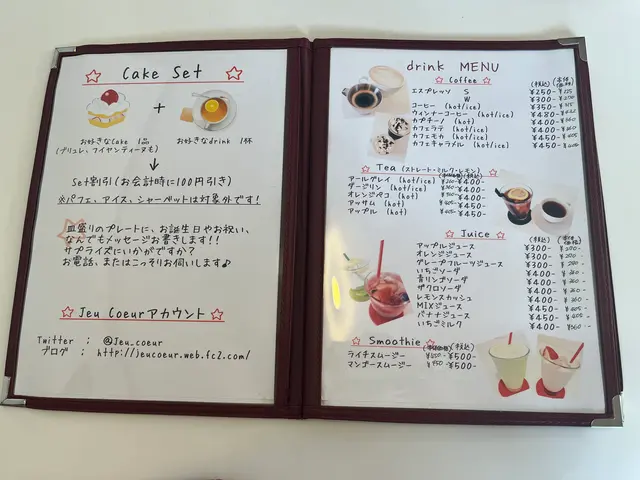 Cake Set
+
お好きなCake 1品
(ブリュレ、フイヤンティーヌも)
お好きなdrink 1杯
↓
Set割引(お会計時に100円引き)
※パフェ、アイス、シャーベットは対象外です!
皿盛りのプレートに、お誕生日やお祝い、
なんでもメッセージお書きします!!
サプライズにいかがですか?
お電話、またはこっそりお伺いします♪
☆ Jeu Coeurアカウント ☆
Twitter : @Jeu_coeur
ブログ : http://jeucoeur.web.fc2.com/
drink MENU
☆ Coffee ☆ (税込)
エスプレッソ S ¥250-
W ¥300-
コーヒー (hot/ice) ¥350-
ウィンナーコーヒー (hot/ice) ¥430-
カプチーノ (hot) ¥400-
カフェラテ (hot/ice) ¥400-
カフェモカ (hot/ice) ¥450-
カフェキャラメル (hot/ice) ¥450-
☆ Tea (ストレート・ミルク・レモン) ☆
アールグレイ (hot/ice) ¥400-
ダージリン (hot/ice) ¥400-
オレンジペコ (hot) ¥400-
アッサム (hot) ¥450-
アップル (hot) ¥450-
☆ Juice ☆ (税込)
アップルジュース ¥300-
オレンジジュース ¥300-
グレープフルーツジュース ¥300-
いちごソーダ ¥400-
青リンゴソーダ ¥400-
ザクロソーダ ¥400-
レモンスカッシュ ¥400-
MIXジュース ¥450-
バナナジュース ¥450-
いちごミルク ¥400-
☆ Smoothie ☆ (税込)
ライチスムージー ¥500-
マンゴースムージー ¥500-